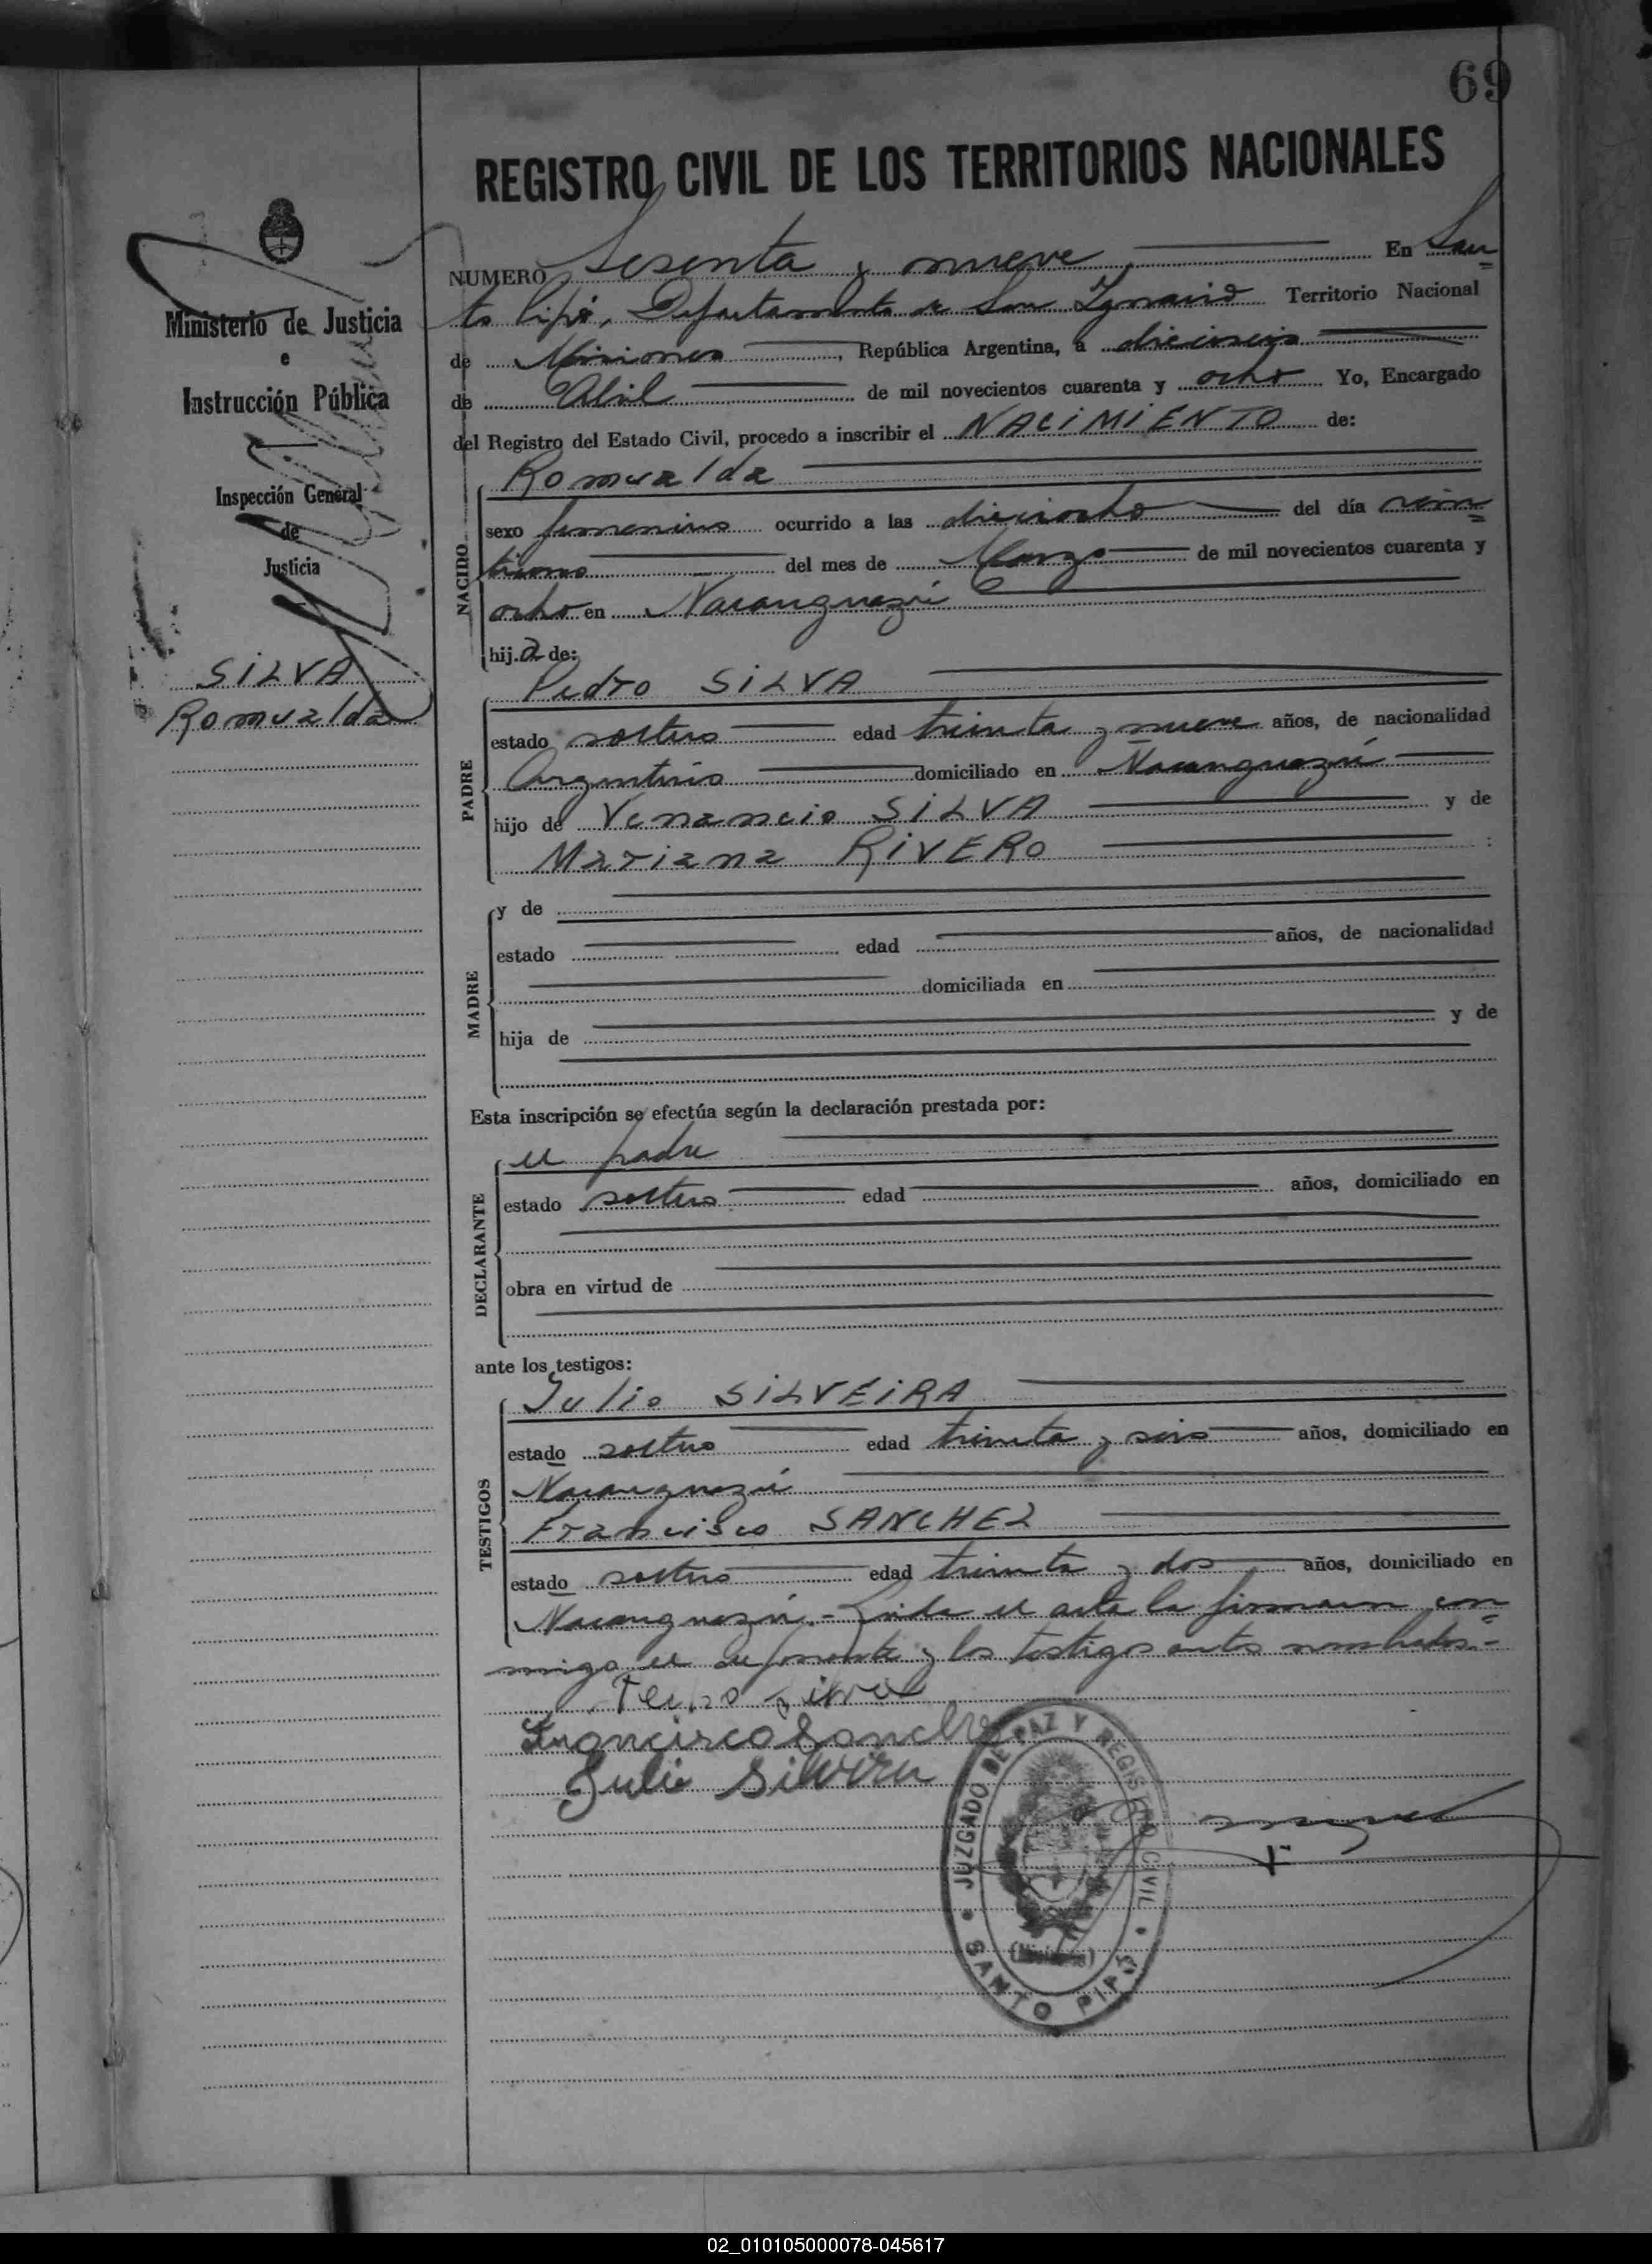 69
REGISTRO CIVIL DE LOS TERRITORIOS NACIONALES
Ministerio de Justicia
e
Instrucción Pública
Inspección General
de
Justicia
SILVA
Romualda
NUMERO Sesenta y nueve En San
to Pipó, Departamento de San Ignacio Territorio Nacional
de Misiones, República Argentina, a dieciseis
de Abril de mil novecientos cuarenta y ocho Yo, Encargado
del Registro del Estado Civil, procedo a inscribir el NACIMIENTO de:
NACIDO
Romualda
sexo femenino ocurrido a las dieciocho del día vein
tiuno del mes de Marzo de mil novecientos cuarenta y
ocho en Ñacanguazú
hij.a de:
PADRE
Pedro SILVA
estado soltero edad treinta y nueve años, de nacionalidad
Argentino domiciliado en Ñacanguazú
hijo de Venancio SILVA y de
Mariana RIVERO :
MADRE
y de
estado edad años, de nacionalidad
domiciliada en
hija de y de
Esta inscripción se efectúa según la declaración prestada por:
DECLARANTE
el padre
estado soltero edad años, domiciliado en
obra en virtud de
ante los testigos:
TESTIGOS
Julio SILVEIRA
estado soltero edad treinta y seis años, domiciliado en
Ñacanguazú
Francisco SANCHEZ
estado soltero edad treinta y dos años, domiciliado en
Ñacanguazú.- Leída el acta la firmaron con
migo el deponente y los testigos antes nombrados.-
Pedro Silva
Francisco Sanche
Julio Silveira
JUZGADO DE PAZ Y REGISTRO CIVIL
(Misiones)
SANTO PIPÓ
02_010105000078-045617